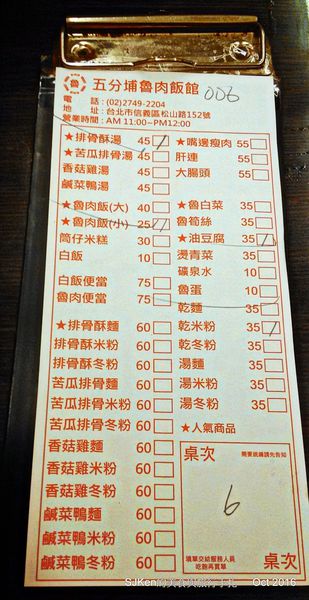 魯 五分埔魯肉飯館 006
電 話：(02)2749-2204
地 址：台北市信義區松山路152號
營業時間：AM 11:00~PM12:00
★排骨酥湯 45
★苦瓜排骨湯 45
香菇雞湯 45
鹹菜鴨湯 45
★魯肉飯(大) 40
★魯肉飯(小) 25
筒仔米糕 30
白飯 10
白飯便當 75
魯肉便當 75
★排骨酥麵 60
排骨酥米粉 60
排骨酥冬粉 60
苦瓜排骨麵 60
苦瓜排骨米粉 60
苦瓜排骨冬粉 60
香菇雞麵 60
香菇雞米粉 60
香菇雞冬粉 60
鹹菜鴨麵 60
鹹菜鴨米粉 60
鹹菜鴨冬粉 60
★嘴邊瘦肉 55
肝連 55
大腸頭 55
★魯白菜 35
魯筍絲 35
★油豆腐 35
燙青菜 35
礦泉水 10
魯蛋 10
乾麵 35
乾米粉 35
乾冬粉 35
湯麵 35
湯米粉 35
湯冬粉 35
★人氣商品
桌次 需要統編請先告知
6
填單交給服務人員
吃飽再買單
桌次
SJKen的美食與旅行手札 Oct 2016